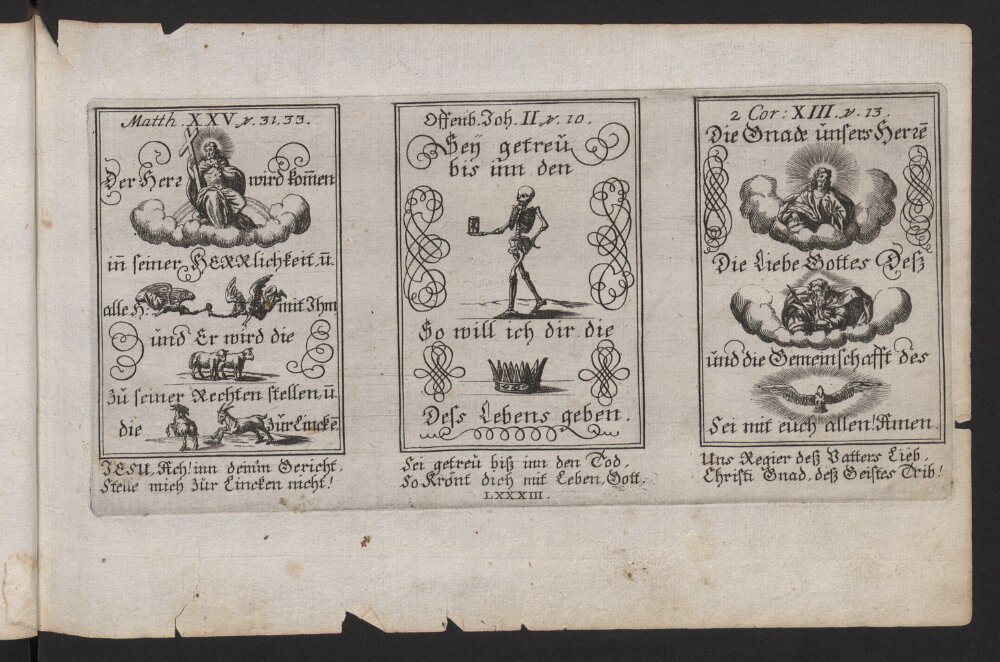 Matth. XXV. v. 31. 33.
Der Herr wird kom̄en
in̄ seiner HERRlichkeit, ū.
alle H. mit Ihm
und Er wird die
zu seiner Rechten stellen, ū.
die zur Lincke͂.
JESU, Ach! inn deinm Gericht,
Stelle mich zur Lincken nicht!
Offenb. Joh. II. v. 10.
Sey getreu
bis inn den
So will ich dir die
Dess Lebens geben.
Sei getreu biß inn den Tod,
So Krönt dich mit Leben, Gott.
LXXXIII.
2 Cor: XIII. v. 13.
Die Gnade unsers Herre͂
Die Liebe Gottes Deß
und die Gemeinschafft des
Sei mit euch allen! Amen.
Uns Regier deß Vatters Lieb,
Christi Gnad, deß Geistes Trib!